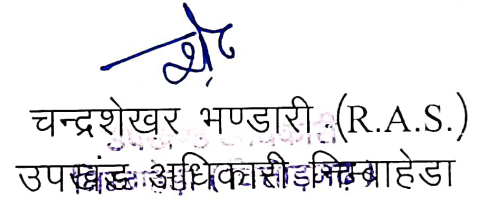 चन्द्रशेखर भण्डारी (R.A.S.)
उपखंड अधिकारी निम्बाहेडा